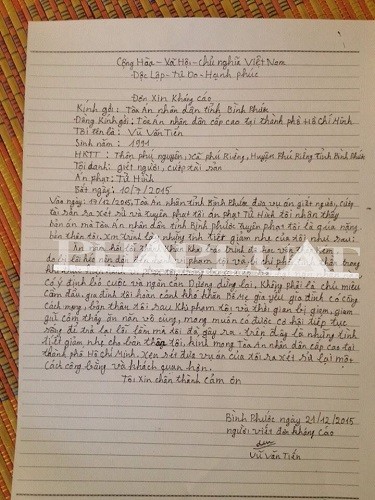 Cộng Hòa - Xã Hội - Chủ nghĩa Việt Nam
Độc Lập - Tự Do - Hạnh phúc
Đơn Xin Kháng Cáo
Kính gởi: Tòa Án nhân dân tỉnh Bình Phước
Đồng Kính gởi: Tòa Án nhân dân cấp cao tại thành phố Hồ Chí Minh
Tôi tên là: Vũ Văn Tiến
Sinh năm: 1991
HKTT: Thôn phú nguyên, xã phú Riềng, Huyện Phú Riềng Tỉnh Bình Phước
Tội danh: giết người, cướp tài sản
Án phạt: Tử Hình
Bắt ngày: 10/7/2015
Vào ngày: 17/12/2015, Tòa Án nhân dân tỉnh Bình Phước đưa vụ án giết người, cướp
tài sản ra xét xử và tuyên phạt tôi án phạt Tử Hình tôi nhận thấy
bản án mà Tòa Án nhân dân tỉnh Bình phước tuyên phạt tôi là quá nặng
bản thân tôi. Xin trình bày những tình tiết giảm nhẹ của tôi như sau:
cố ý định bỏ cuộc và ngăn cản Dương dừng lại, Không phải là chủ mưu
cầm đầu, gia đình tôi hoàn cảnh khó khăn Bố Mẹ già yếu, gia đình có công
cách mạng, bản thân tôi sau khi phạm tội và thời gian bị giam, giam
giữ cảm thấy ăn năn vô cùng, mong muốn có được cơ hội tiếp tục
sống để trả lại lỗi lầm mà tôi đã gây ra. trên đây là những tình
tiết giảm nhẹ cho bản thân tôi, kính mong Tòa Án nhân dân cấp cao tại
thành phố Hồ Chí Minh. Xem xét đưa vụ án của tôi ra xét xử lại một
cách công bằng và khách quan hơn.
Tôi Xin chân thành cảm ơn
Bình Phước ngày 21/12/2015
người viết đơn kháng cáo
Vũ Văn Tiến